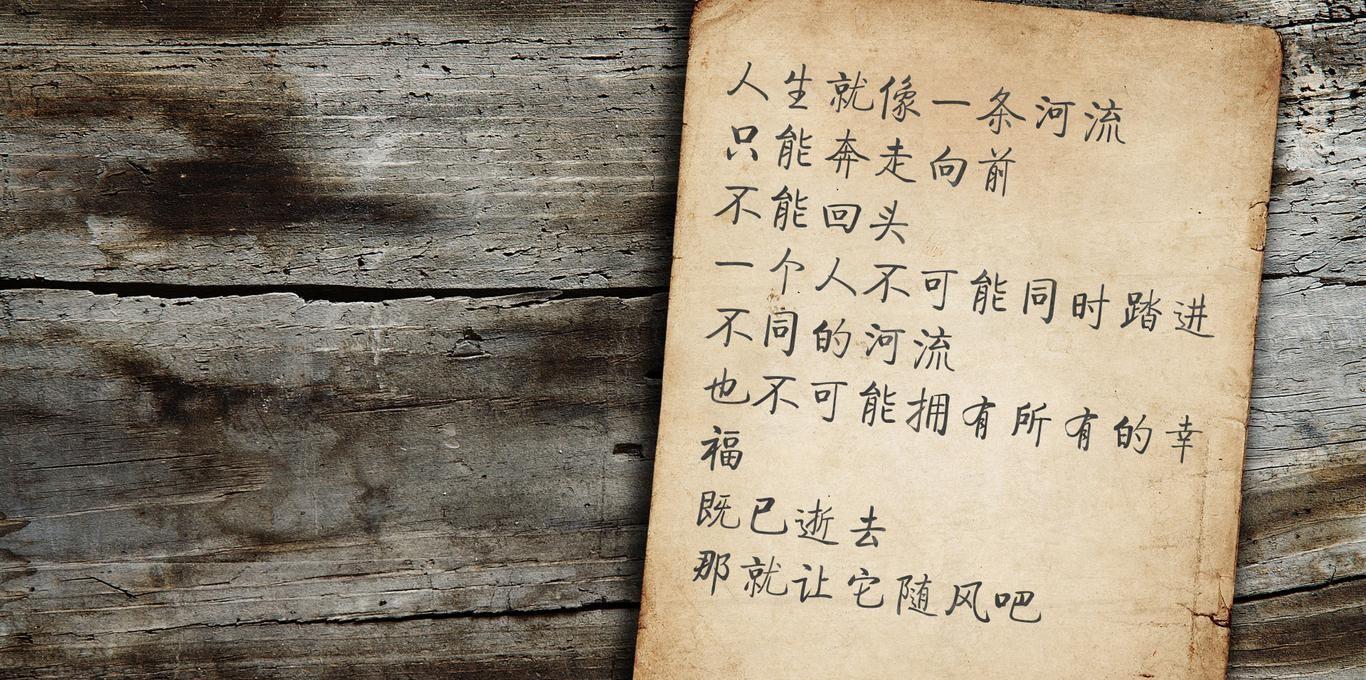 人生就像一条河流
只能奔走向前
不能回头
一个人不可能同时踏进
不同的河流
也不可能拥有所有的幸
福
既已逝去
那就让它随风吧